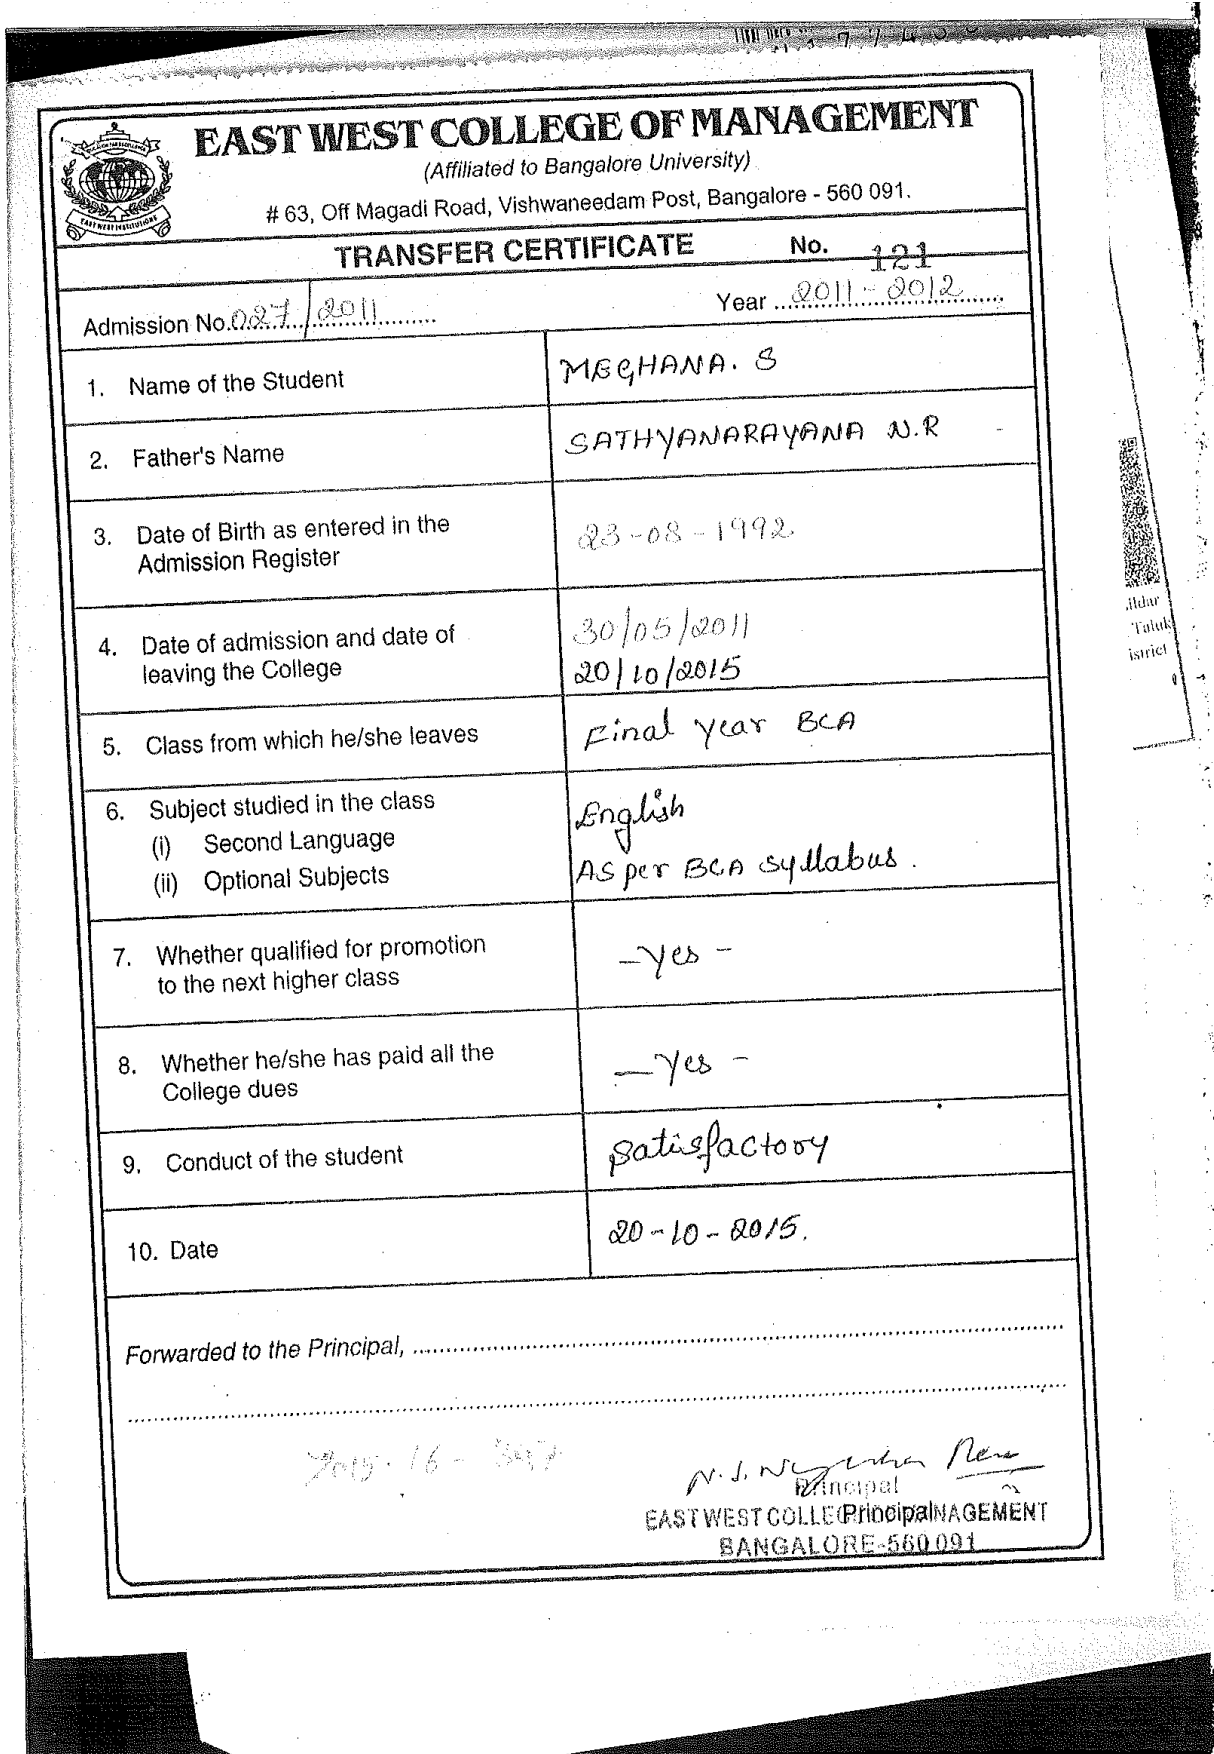 EAST WEST COLLEGE OF MANAGEMENT
(Affiliated to Bangalore University)
# 63, Off Magadi Road, Vishwaneedam Post, Bangalore - 560 091.
EAST WEST INSTITUTIONS
TRANSFER CERTIFICATE No. 121
Admission No. 027/2011 Year 2011-2012
1. Name of the Student MEGHANA. S
2. Father's Name SATHYANARAYANA N.R
3. Date of Birth as entered in the
Admission Register 23-08-1992
4. Date of admission and date of 30/05/2011
leaving the College 20/10/2015
5. Class from which he/she leaves Final Year BCA
6. Subject studied in the class
(i) Second Language English
(ii) Optional Subjects As per BCA syllabus.
7. Whether qualified for promotion
to the next higher class - Yes -
8. Whether he/she has paid all the
College dues - Yes -
9. Conduct of the student Satisfactory
10. Date 20-10-2015.
Forwarded to the Principal,
Principal
Principal
EAST WEST COLLEGE MANAGEMENT
BANGALORE-560 091
Taluk